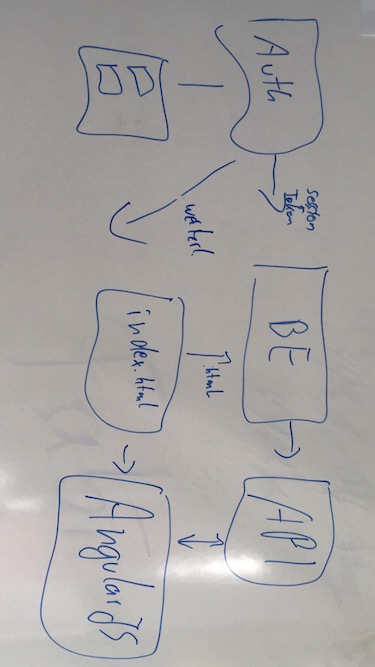 Auth
session
Token
BE
API
.html
index.html
AngularJS